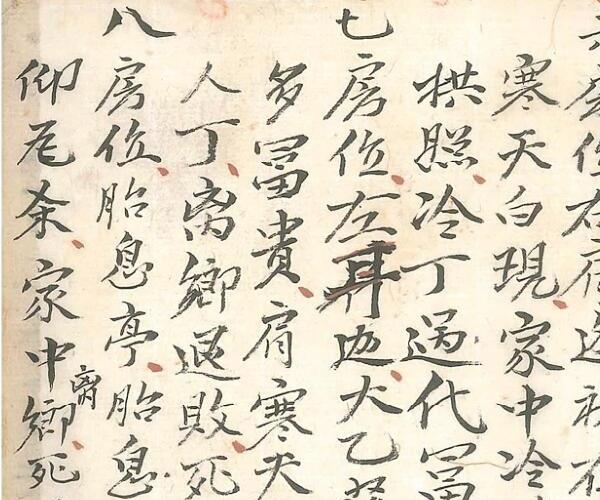 房位右肩
寒天白現家中冷
拱照冷丁過代冨
七房位左耳大乙
多冨貴肩寒天
人丁离鄉退敗死
八房位胎息亭胎息
仰家中离鄉死